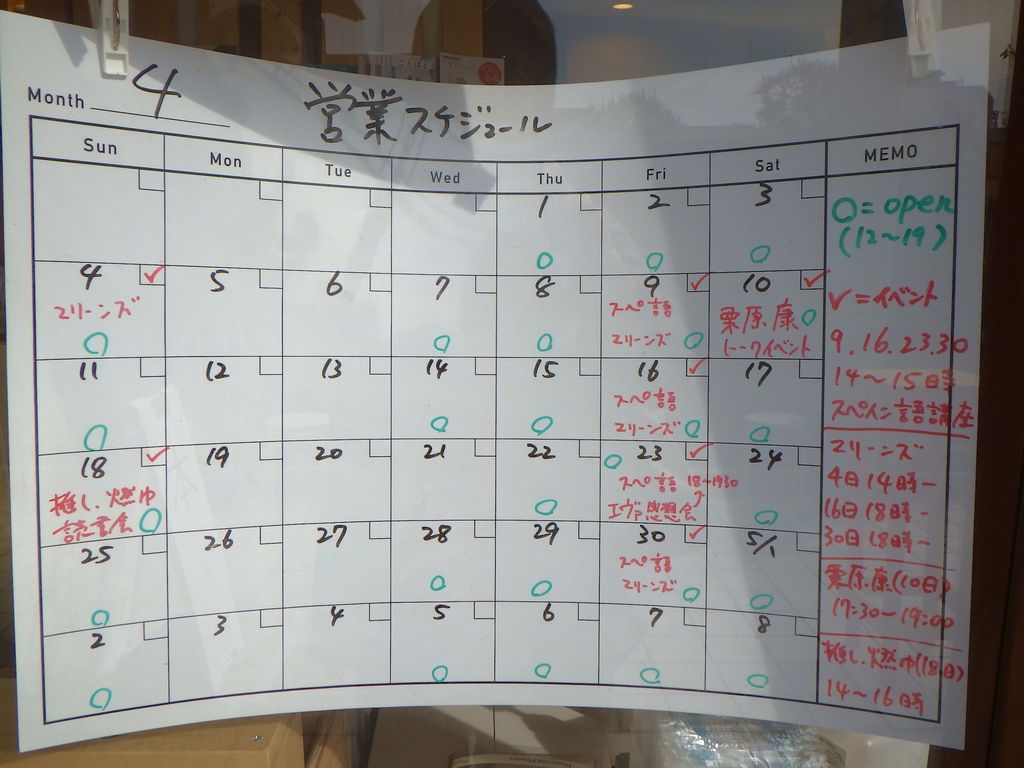 Month 4
営業スケジュール
Sun Mon Tue Wed Thu Fri Sat MEMO
1 2 3
4 5 6 7 8 9 10
Zリーンズ
スペ語
Zリーンズ
栗原康
トークイベント
11 12 13 14 15 16 17
スペ語
Zリーンズ
18 19 20 21 22 23 24
推し、燃ゆ
読書会
スペ語 18~1930
エヴァ感想会
25 26 27 28 29 30 5/1
スペ語
Zリーンズ
2 3 4 5 6 7 8
○=open
(12~19)
✓=イベント
9.16.23.30
14~15時
スペイン語講座
Zリーンズ
4日14時-
16日18時-
30日18時-
栗原康(10日)
17:30-19:00
推し、燃ゆ(18日)
14~16時